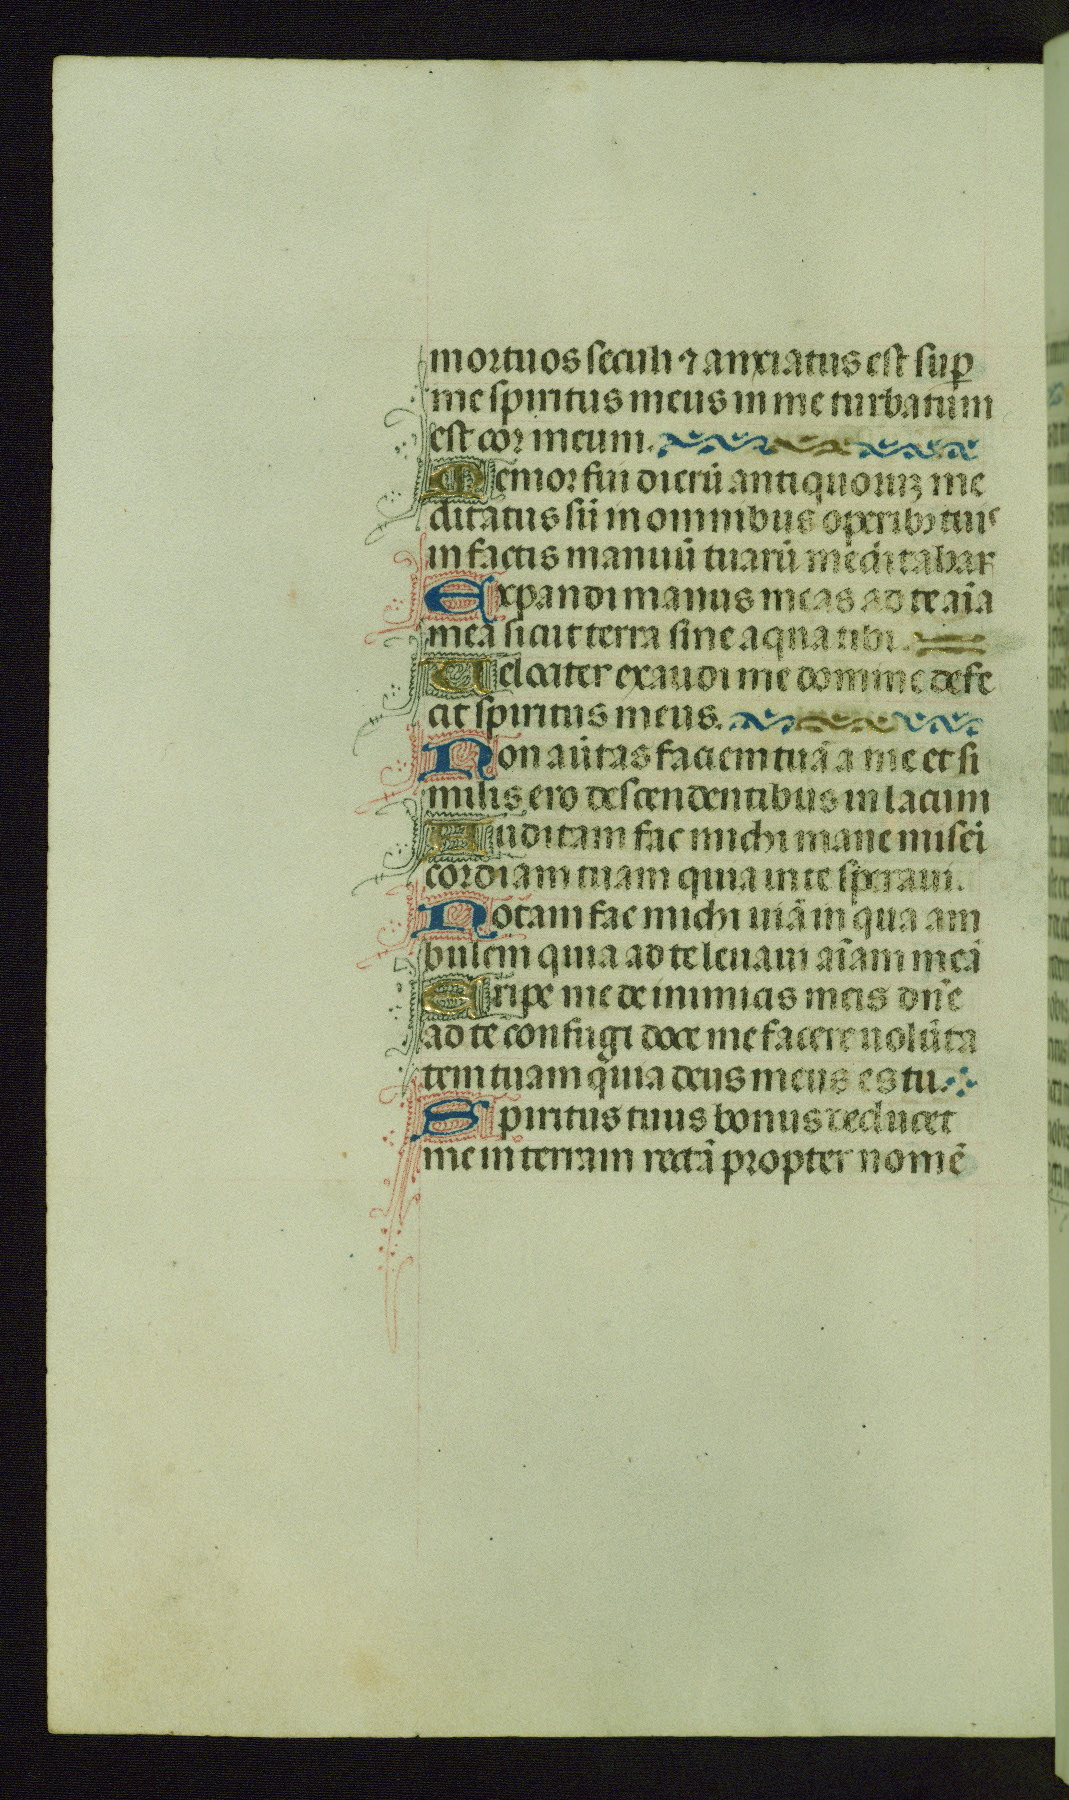 mortuos seculi ⁊ anxiatus est suꝑ
me spiritus meus in me turbatum
est cor meum.
Memor fui dierū antiquoruꝫ me
ditatus sū in omnibus operibꝫ tuis
in factis manuū tuarū meditabar
Expandi manus meas ad te aīa
mea sicut terra sine aqua tibi.
Uelociter exaudi me domine defe
cit spiritus meus.
Non aūtas faciem tuā a me et si
milis ero descendentibus in lacum
Auditam fac michi mane misēi
cordiam tuam quia in te speraui.
Notam fac michi uiā in qua am
bulem quia ad te leuaui aīam meā
Eripe me de inimicis meis dn̄e
ad te confugi doce me facere uolūta
tem tuam quia deus meus es tu.
Spiritus tuus bonus deducet
me in terram rectā propter nomē